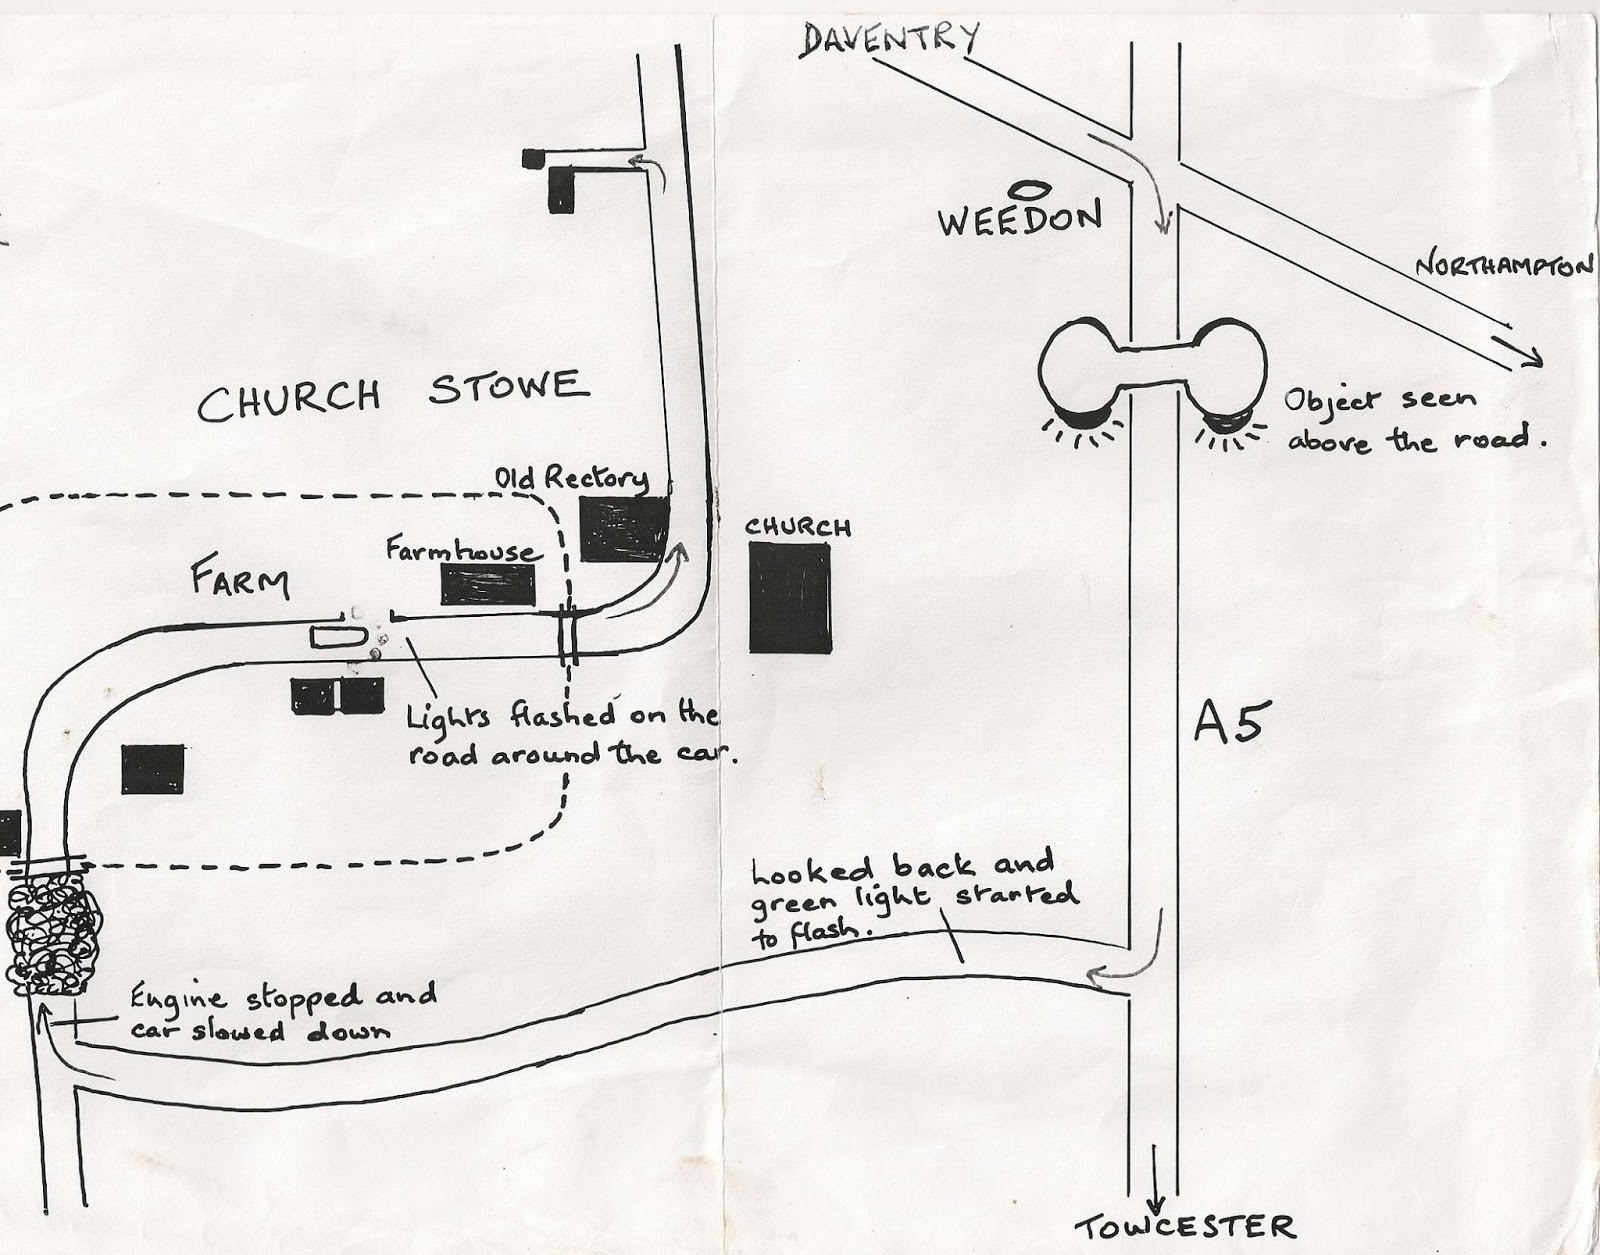 DAVENTRY
WEEDON
NORTHAMPTON
CHURCH STOWE
Object seen
above the road.
Old Rectory
CHURCH
Farmhouse
FARM
Lights flashed on the
road around the car.
A5
Looked back and
green light started
to flash.
Engine stopped and
car slowed down
TOWCESTER